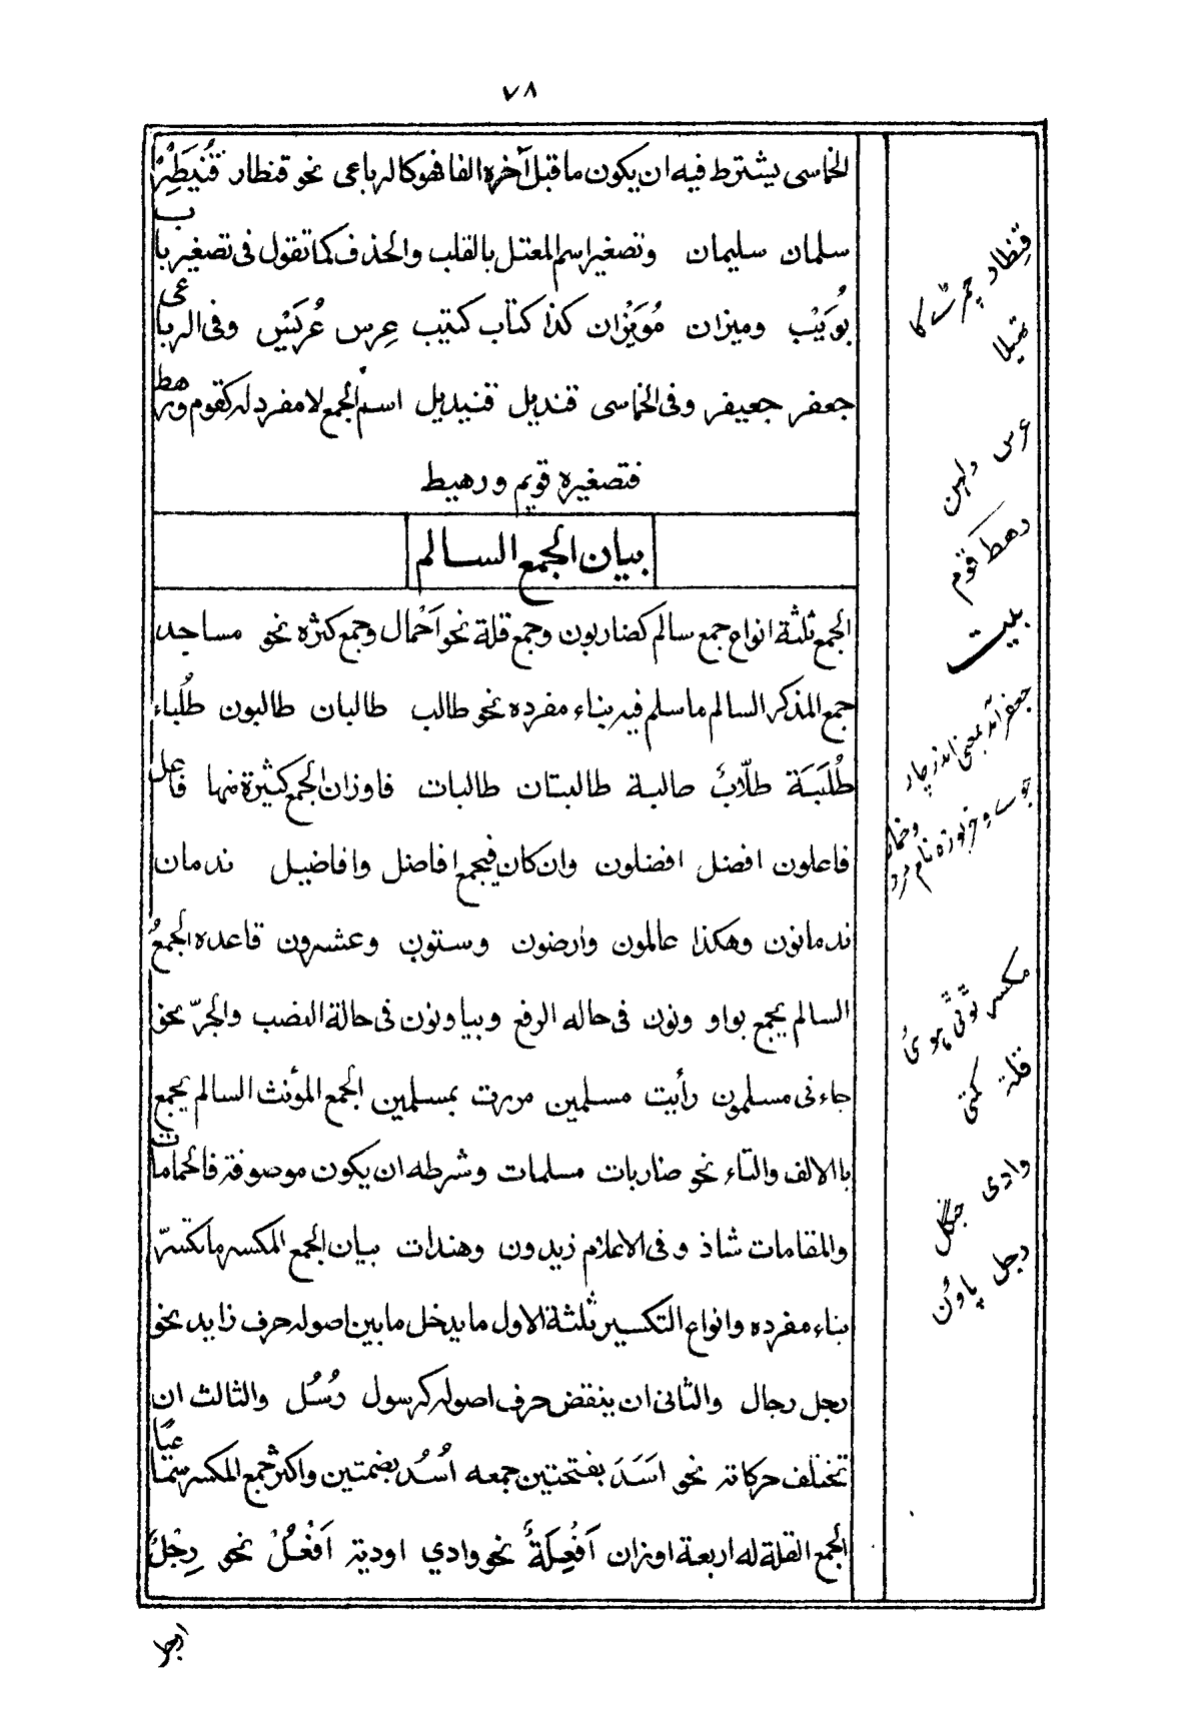 ٧٨
الخماسى يشترط فيه ان يكون ما قبل آخره الفا فهو كالرباعى نحو قنطار قُنَيطِرْ
سلمان سليمان وتصغير اسم المعتل بالقلب والحذف كما تقول فى تصغير باب
بُوَيْب وميزان مُوَيْزان كذا كتاب كتيب عِرس عُرَيْس وفى الرباعى
جعفر جعيفر وفى الخماسى قنديل قنيديل اسم الجمع لا مفرد له كقوم ورهط
فتصغيره قويم ورهيط
بيان الجمع السالم
الجمع ثلثة انواع جمع سالم كضاربون وجمع قلة نحو اَحْمال وجمع كثره نحو مساجد
جمع المذكر السالم ما سلم فيه بناء مفرده نحو طالب طالبان طالبون طُلباء
طُلَبَة طلّابٌ طالبة طالبتان طالبات فاوزان الجمع كثيرة منها فاعل
فاعلون افضل افضلون وان كان فيجمع افاضل وافاضيل ندمان
ندمانون وهكذا عالمون وارضون وستون وعشرون قاعده الجمعُ
السالم يجمع بواو ونون فى حاله الرفع وبيا ونون فى حالة النصب والجرّ نحو
جاءنى مسلمون رأيت مسلمين مررت بمسلمين الجمع المؤنث السالم يجمع
باالالف والتاء نحو ضاربات مسلمات وشرطه ان يكون موصوفة فالحمامات
والمقامات شاذ وفى الاعلام زيدون وهندات بيان الجمع المكسر ما تكسّر
بناء مفرده وانواع التكسير ثلثة الاول ما يدخل ما بين اصوله حرف زايد نحو
رجل رجال والثانى ان ينقض حرف اصوله كرسول رُسُل والثالث ان
تختلف حركاته نحو اَسَدَ بفتحتين جمعه اُسُد بضمتين واكثر جمع المكسر سمّاعيًا
الجمع القلة له اربعة اوزان اَفْعِلَةٌ نحو وادي اودية اَفْعُلْ نحو رِجْلٌ
ارجل
قنطار چمڑے كا
تھيلا
عرس دلہن
رهط قوم
بليت
جعفر آنہ بمعنى اند زچار
جوے وخربوزه نام مرد
مكسر ٹوٹى ہوئى
قلة كمتى
وادى جنگل
رجل پاؤں